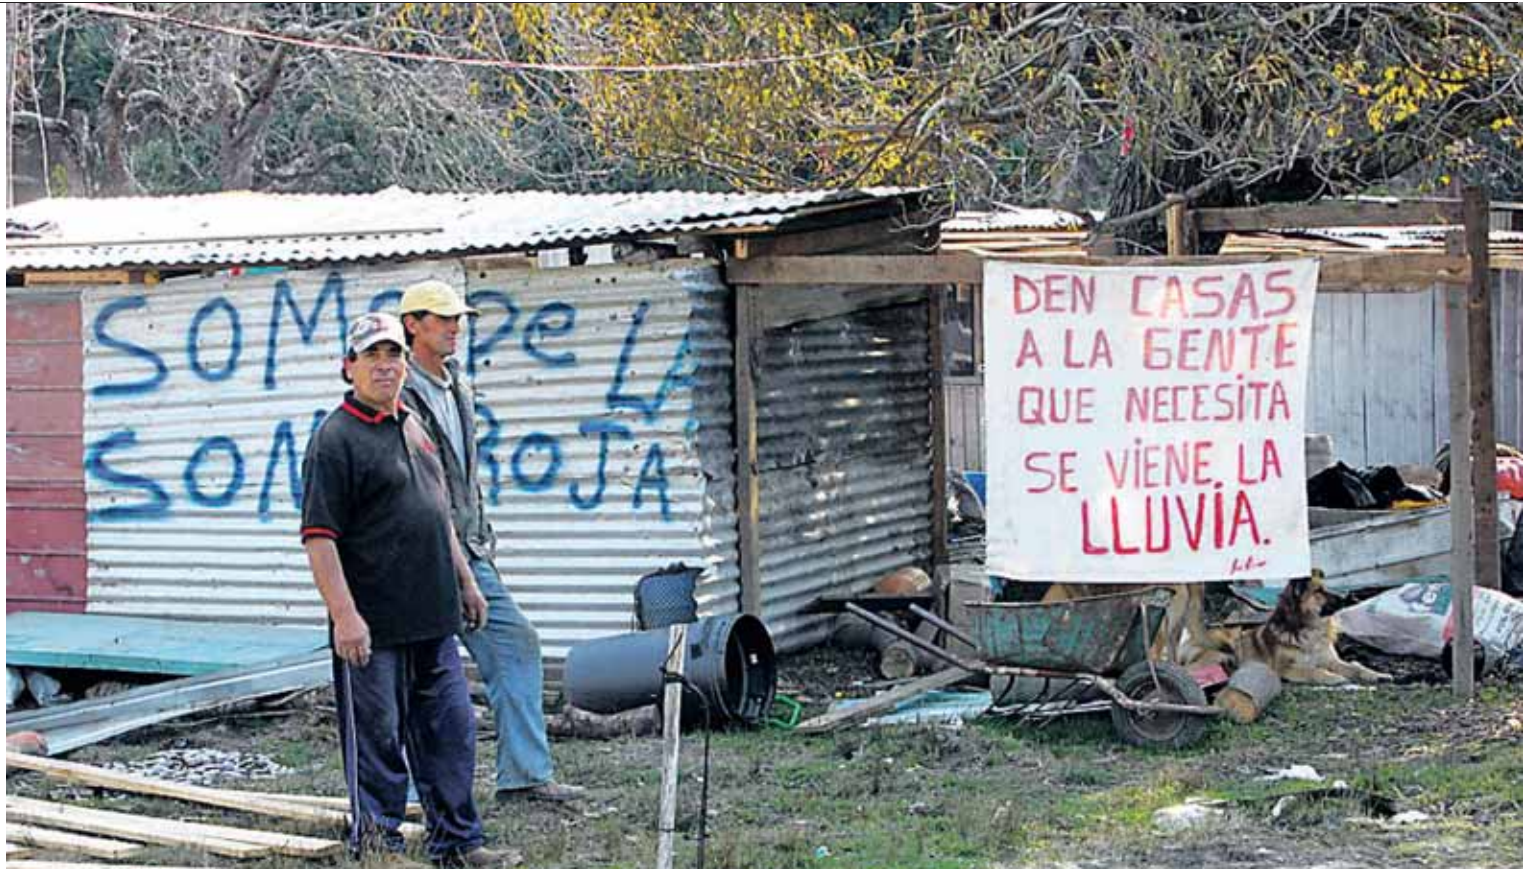 SOM
De LA
SON
ROJA
DEN CASAS
A LA GENTE
QUE NECESITA
SE VIENE LA
LLUVIA.